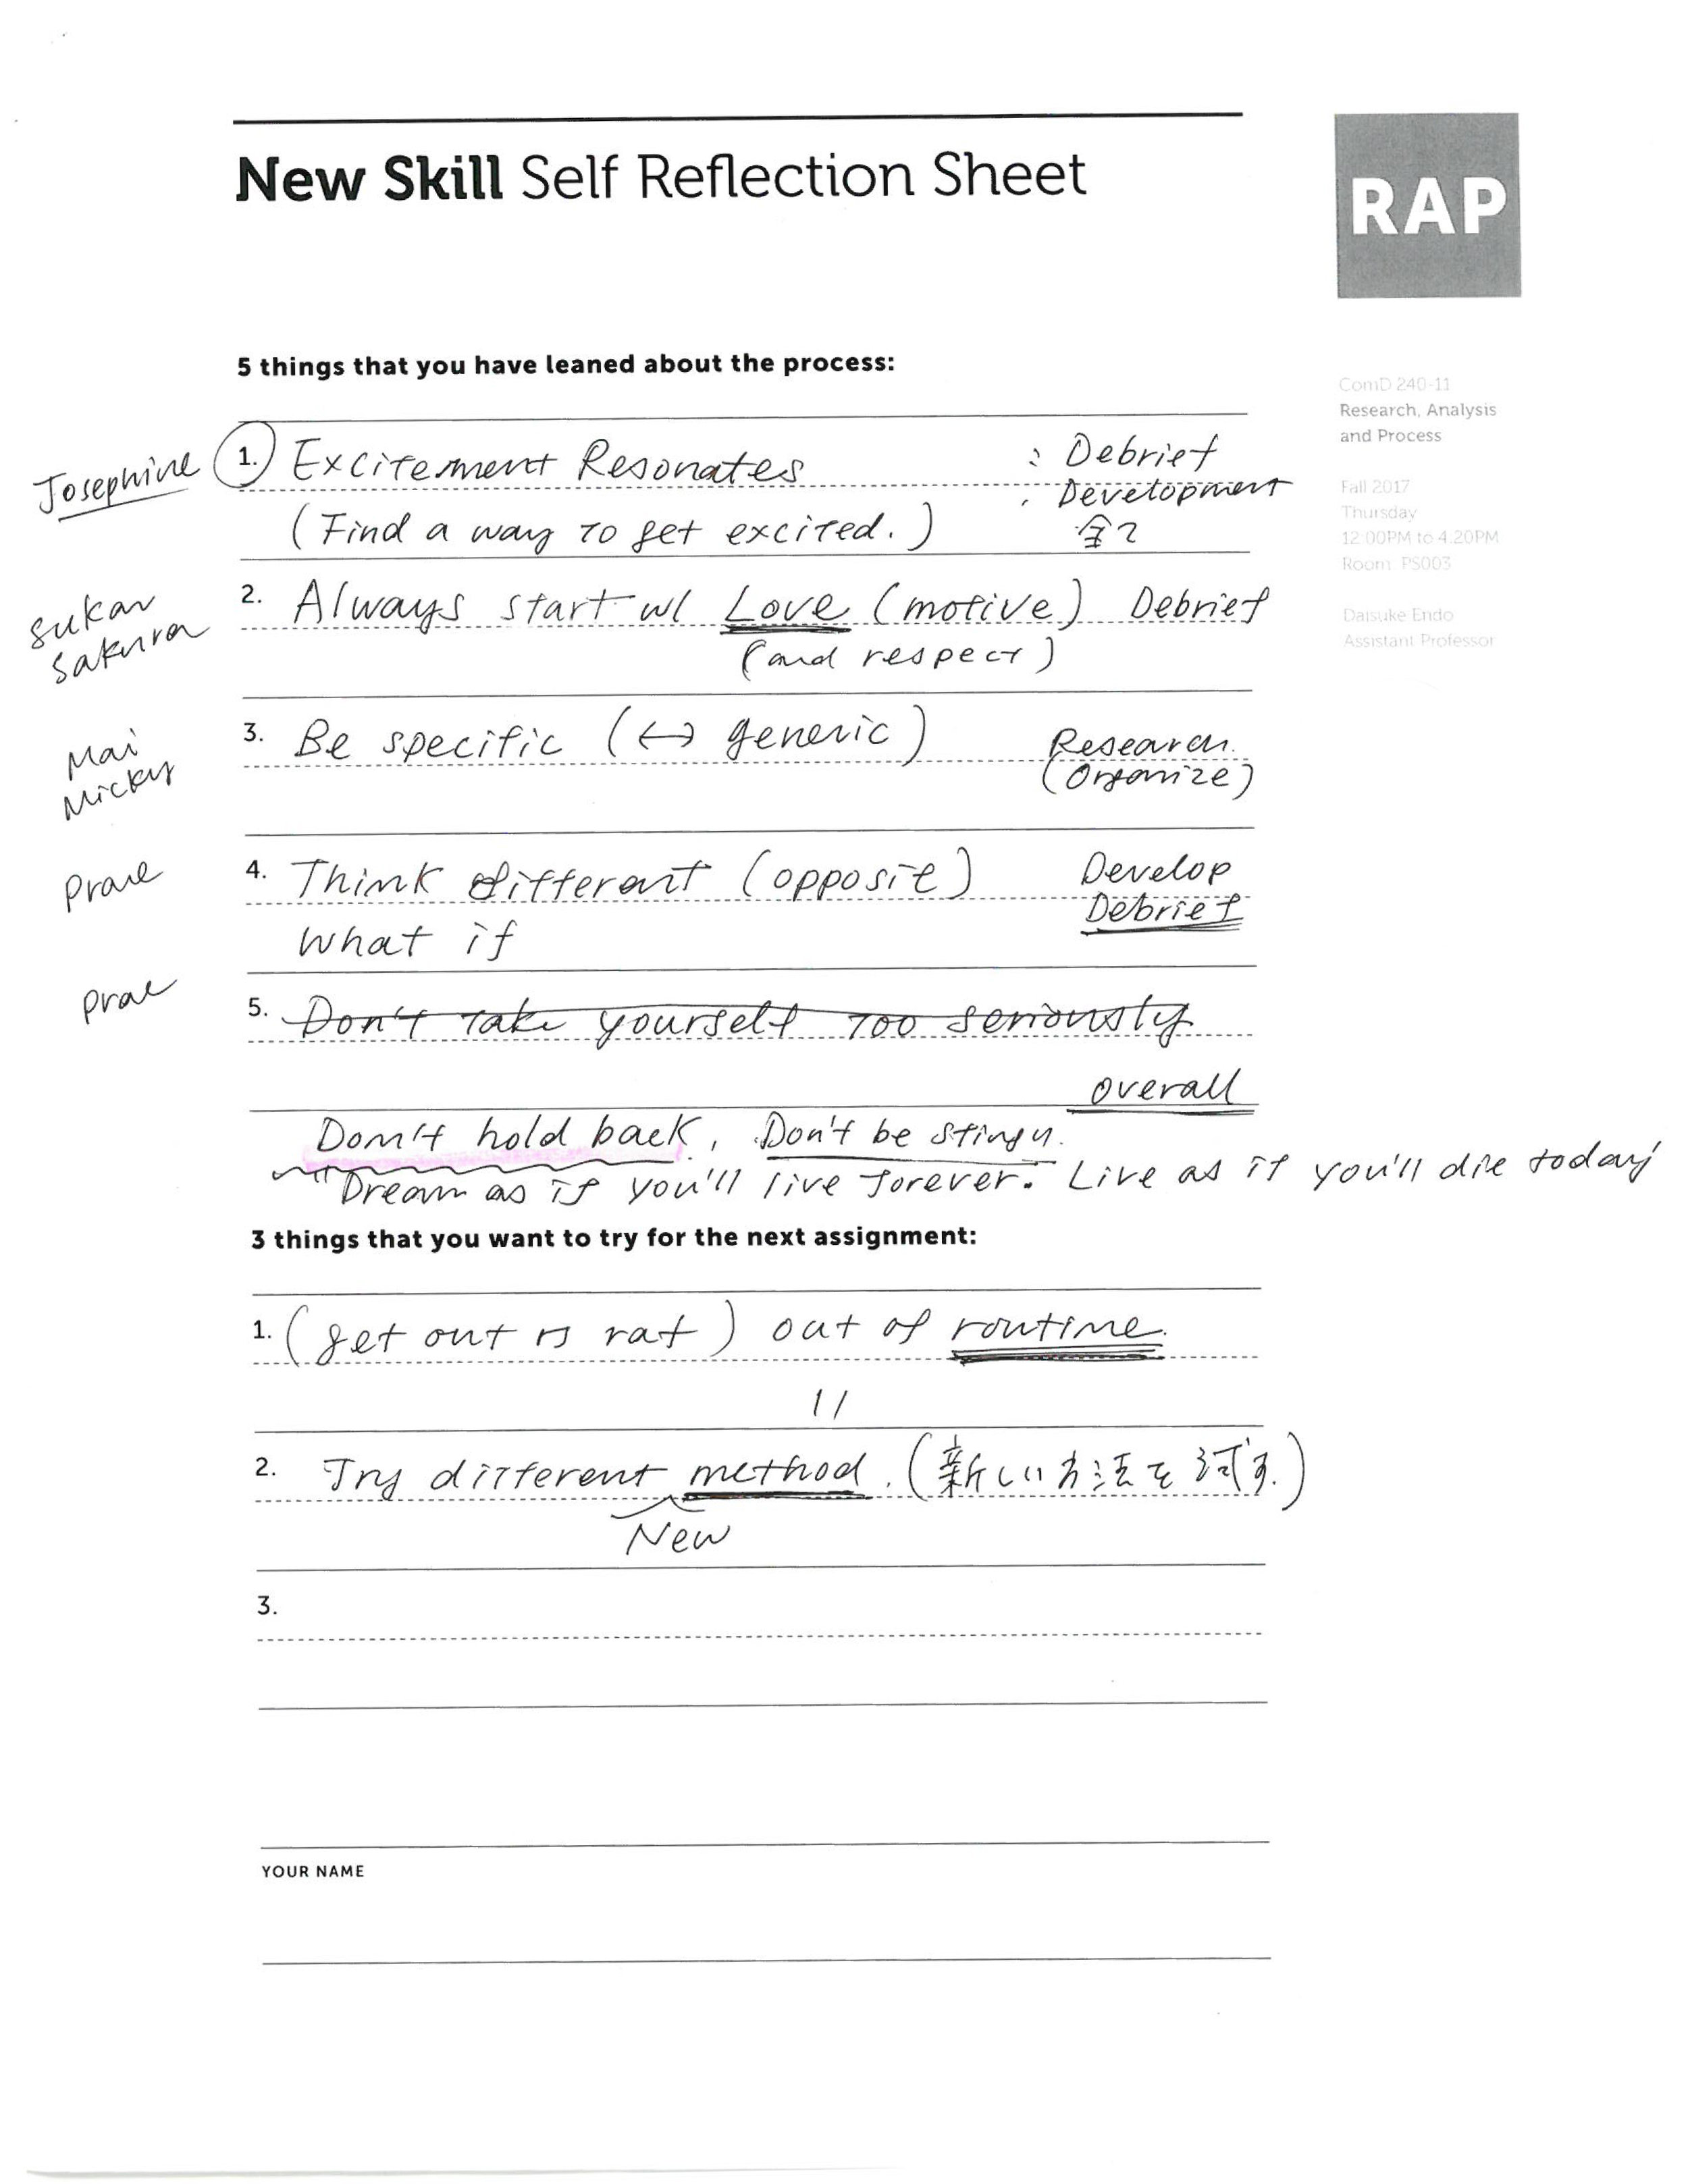 New Skill Self Reflection Sheet
RAP
5 things that you have leaned about the process:
ComD 240-11
Research, Analysis
and Process
Fall 2017
Thursday
12:00PM to 4:20PM
Room PS003
Daisuke Endo
Assistant Professor
Josephine 1. Excitement Resonates : Debrief
. Development
(Find a way to get excited.) 全て
Sukar
Sakura
2. Always start w/ Love (motive) Debrief
(and respect)
Mai
Micky
3. Be specific (↔ generic) Research.
(Organize)
Prae 4. Think different (opposit) Develop
Debrief
What if
Prae 5. Don't take yourself too seriously
overall
Don't hold back, Don't be stingy.
"Dream as if you'll live forever. Live as if you'll die today
3 things that you want to try for the next assignment:
1. (get out rat) out of routine.
//
2. Try different method. (新しい方法を試す.)
New
3.
YOUR NAME